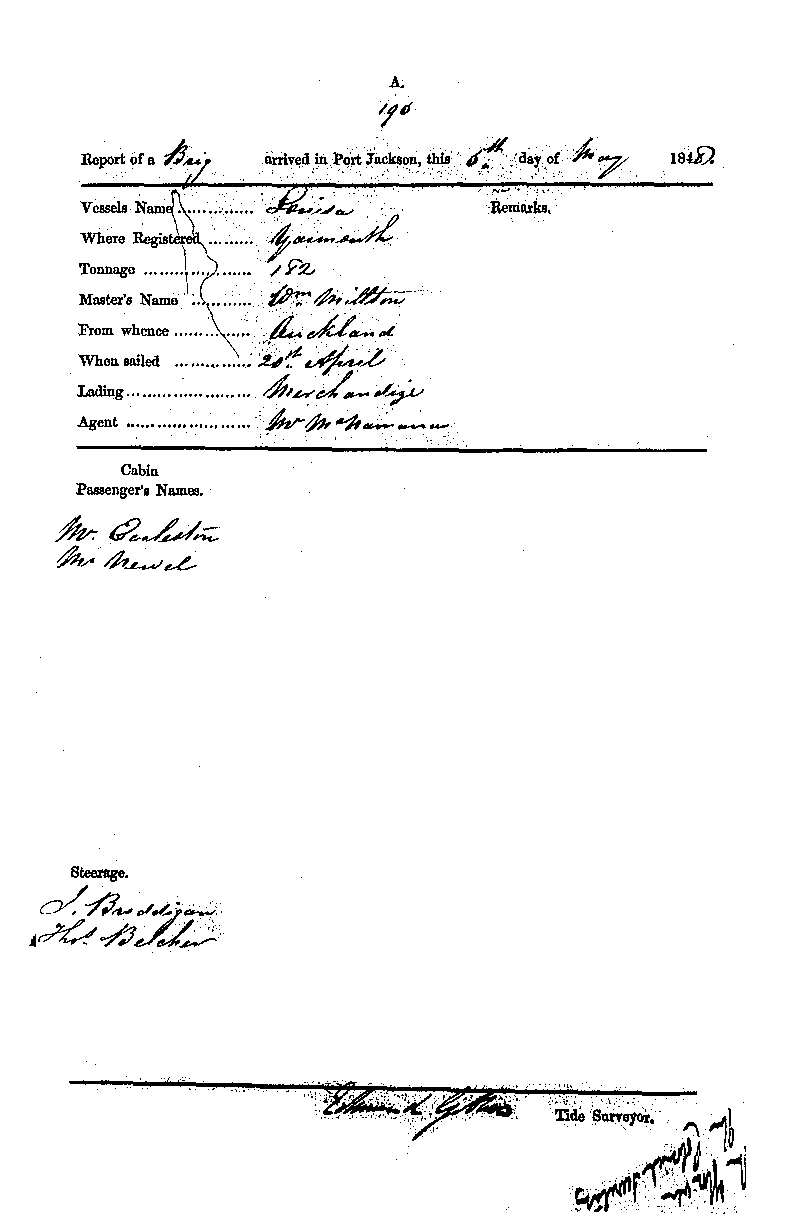 A.
190
Report of a Brig arrived in Port Jackson, this 6th day of May 1848.
Vessels Name .............. Louisa Remarks.
Where Registered ........ Yarmouth
Tonnage ..................... 182
Master's Name ............ Wm Millton
From whence .............. Auckland
When sailed ............... 20th April
Lading ....................... Merchandize
Agent ....................... Mr McNamara
Cabin
Passenger's Names.
Mr. Eccleston
Mr Newel
Steerage.
J. Broddigan
Thos. Belcher
Edmund Tide Surveyor.